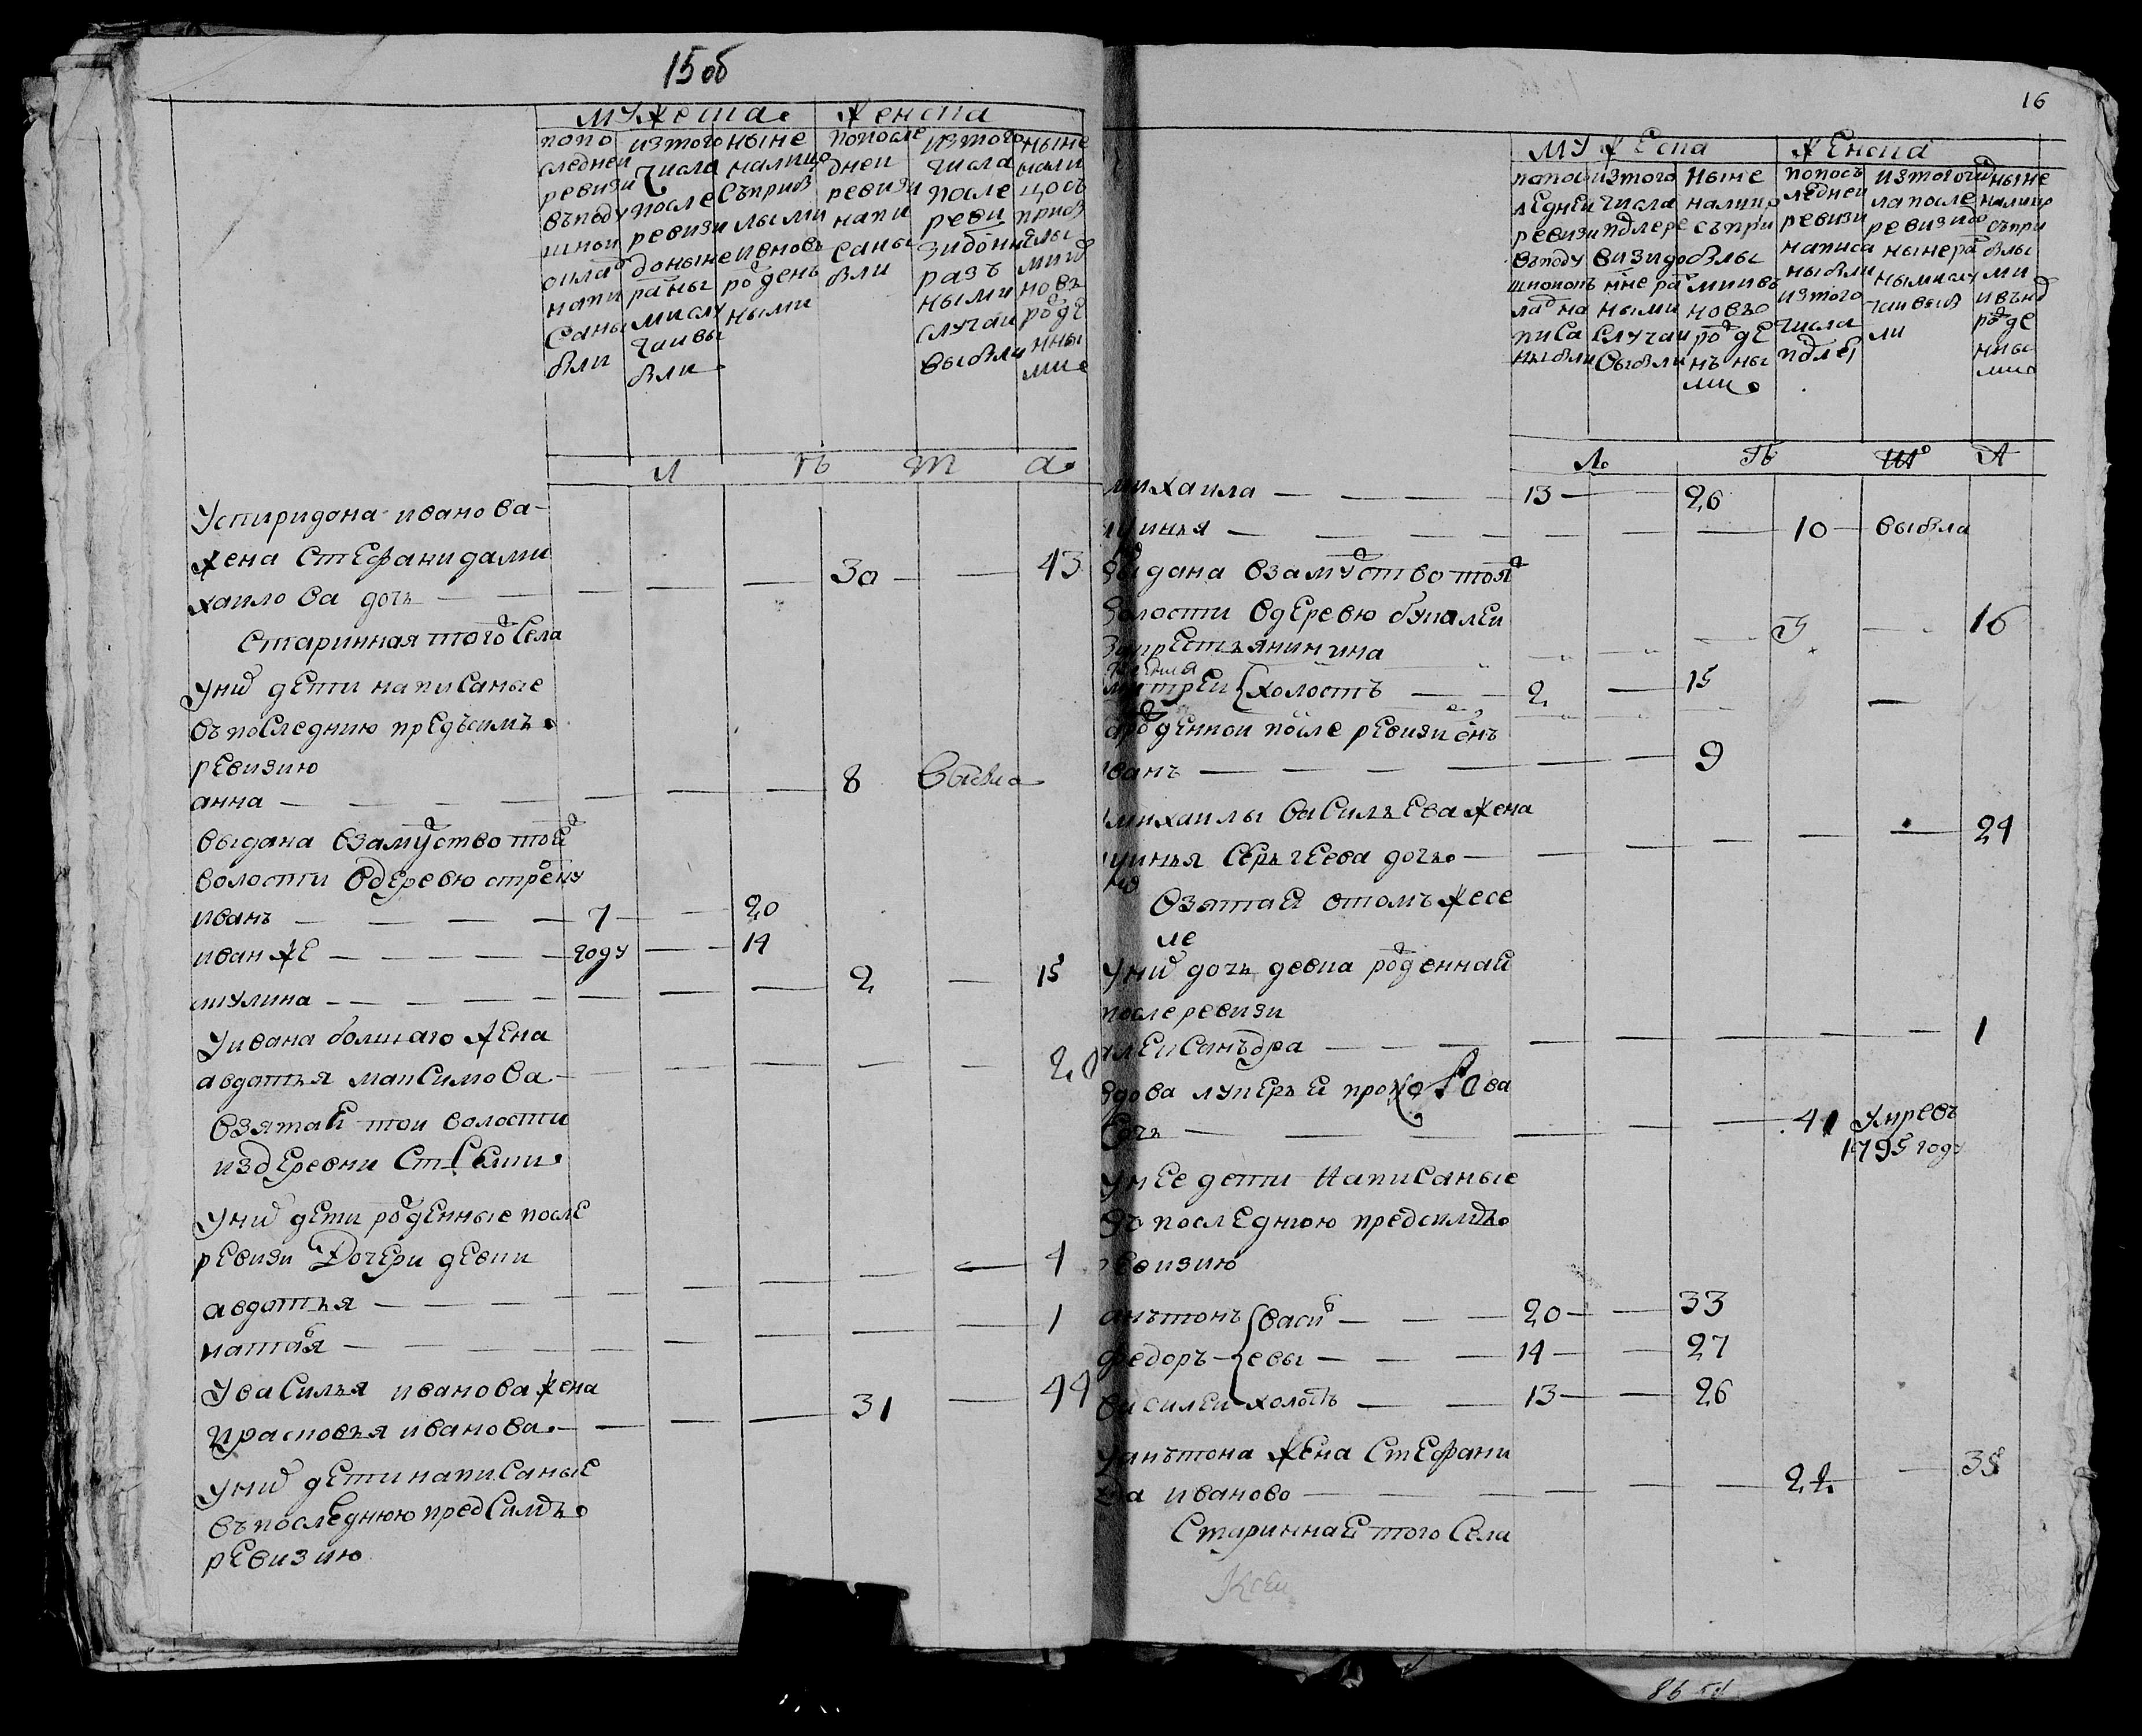 15 об
мужеска женска
попо следней ревизи въподу шной оклад напи саны бли
изтого числа после ревизи доныне разны ми слу чаи вы бли
ныне налицо съприб лыми ивновь рожден ными
попосле дней ревизи напи саны бли
изтого числа после реви зи доны раз ными случаи выбли
ныне нали цо съ приб лы ми и новъ рожде нны ми
л ъ т а
Успиридона иванова
жена стефанида ми
хаилова дочь — 30 — 43
старинная того села
Уних дети написаные
въпоследнию предъсимъ
ревизию
анна — 8 выбла
выдана взамужство той
волости вдеревю
иванъ — 7 — 20
иван же — году — 14
акулина — 2 — 15
Уивана болшаго жена
авдотья максимова — 20
взятая тои волости
издеревни
Уних дети рожденные после
ревизи дочери девки
авдотья — 4
наталя — 1
Увасилья иванова жена
Прасковья иванова — 31 — 44
Уних дети написаные
въпоследнюю предсимъ
ревизию
16
мужеска женска
попос ледней ревизи въподу шнои окъ лад на писа ны бли
изтого числа после ре визи до ныне раз ными случаи выбли
ныне налицо съпри блы ми ивъ новъ рожде нъ ны ми
попосъ ледней ревизи написа ны бли изтого числа после
изтого чис ла после ревизи до ныне раз ными слу чаи выб ли
ныне налицо съпри блы ми ивъно рожде нны ми
л ъ т а
михаила — 13 — 26
— 10 — выбла
выдана взамужство тоя
волости вдеревю
закрестьянинина
— 16
холостъ — 2 — 15
рожденнои после ревизи сынъ
иванъ — 9
Умихаилы васильева жена
серьгеева дочь — 24
взятая втомъ же се
ле
Уних дочь девка рожденная
после ревизи
алексанъдра — 1
вдова лукерья прокофева
дочь — 41 умре въ
1795 году
Унее дети написаные
въ последнюю предсимъ
ревизию
анътонъ васил — 20 — 33
федоръ евы — 14 — 27
василеи холостъ — 13 — 26
Уанътона жена стефани
да иваново — 22 — 35
старинная того села